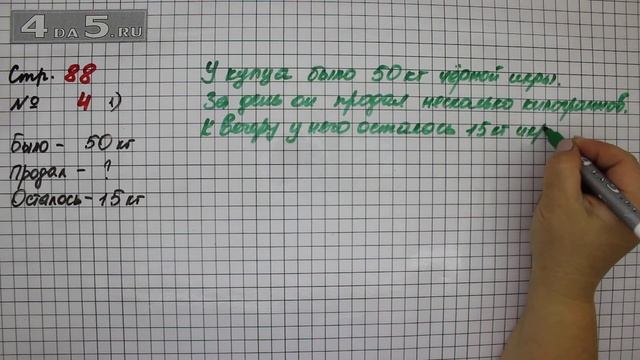 4 ДА 5.RU
Стр. 88
№ 4 1)
Было - 50 кг
Продал - ?
Осталось - 15 кг
У купца было 50 кг чёрной икры.
За день он продал несколько килограммов.
К вечеру у него осталось 15 кг икр